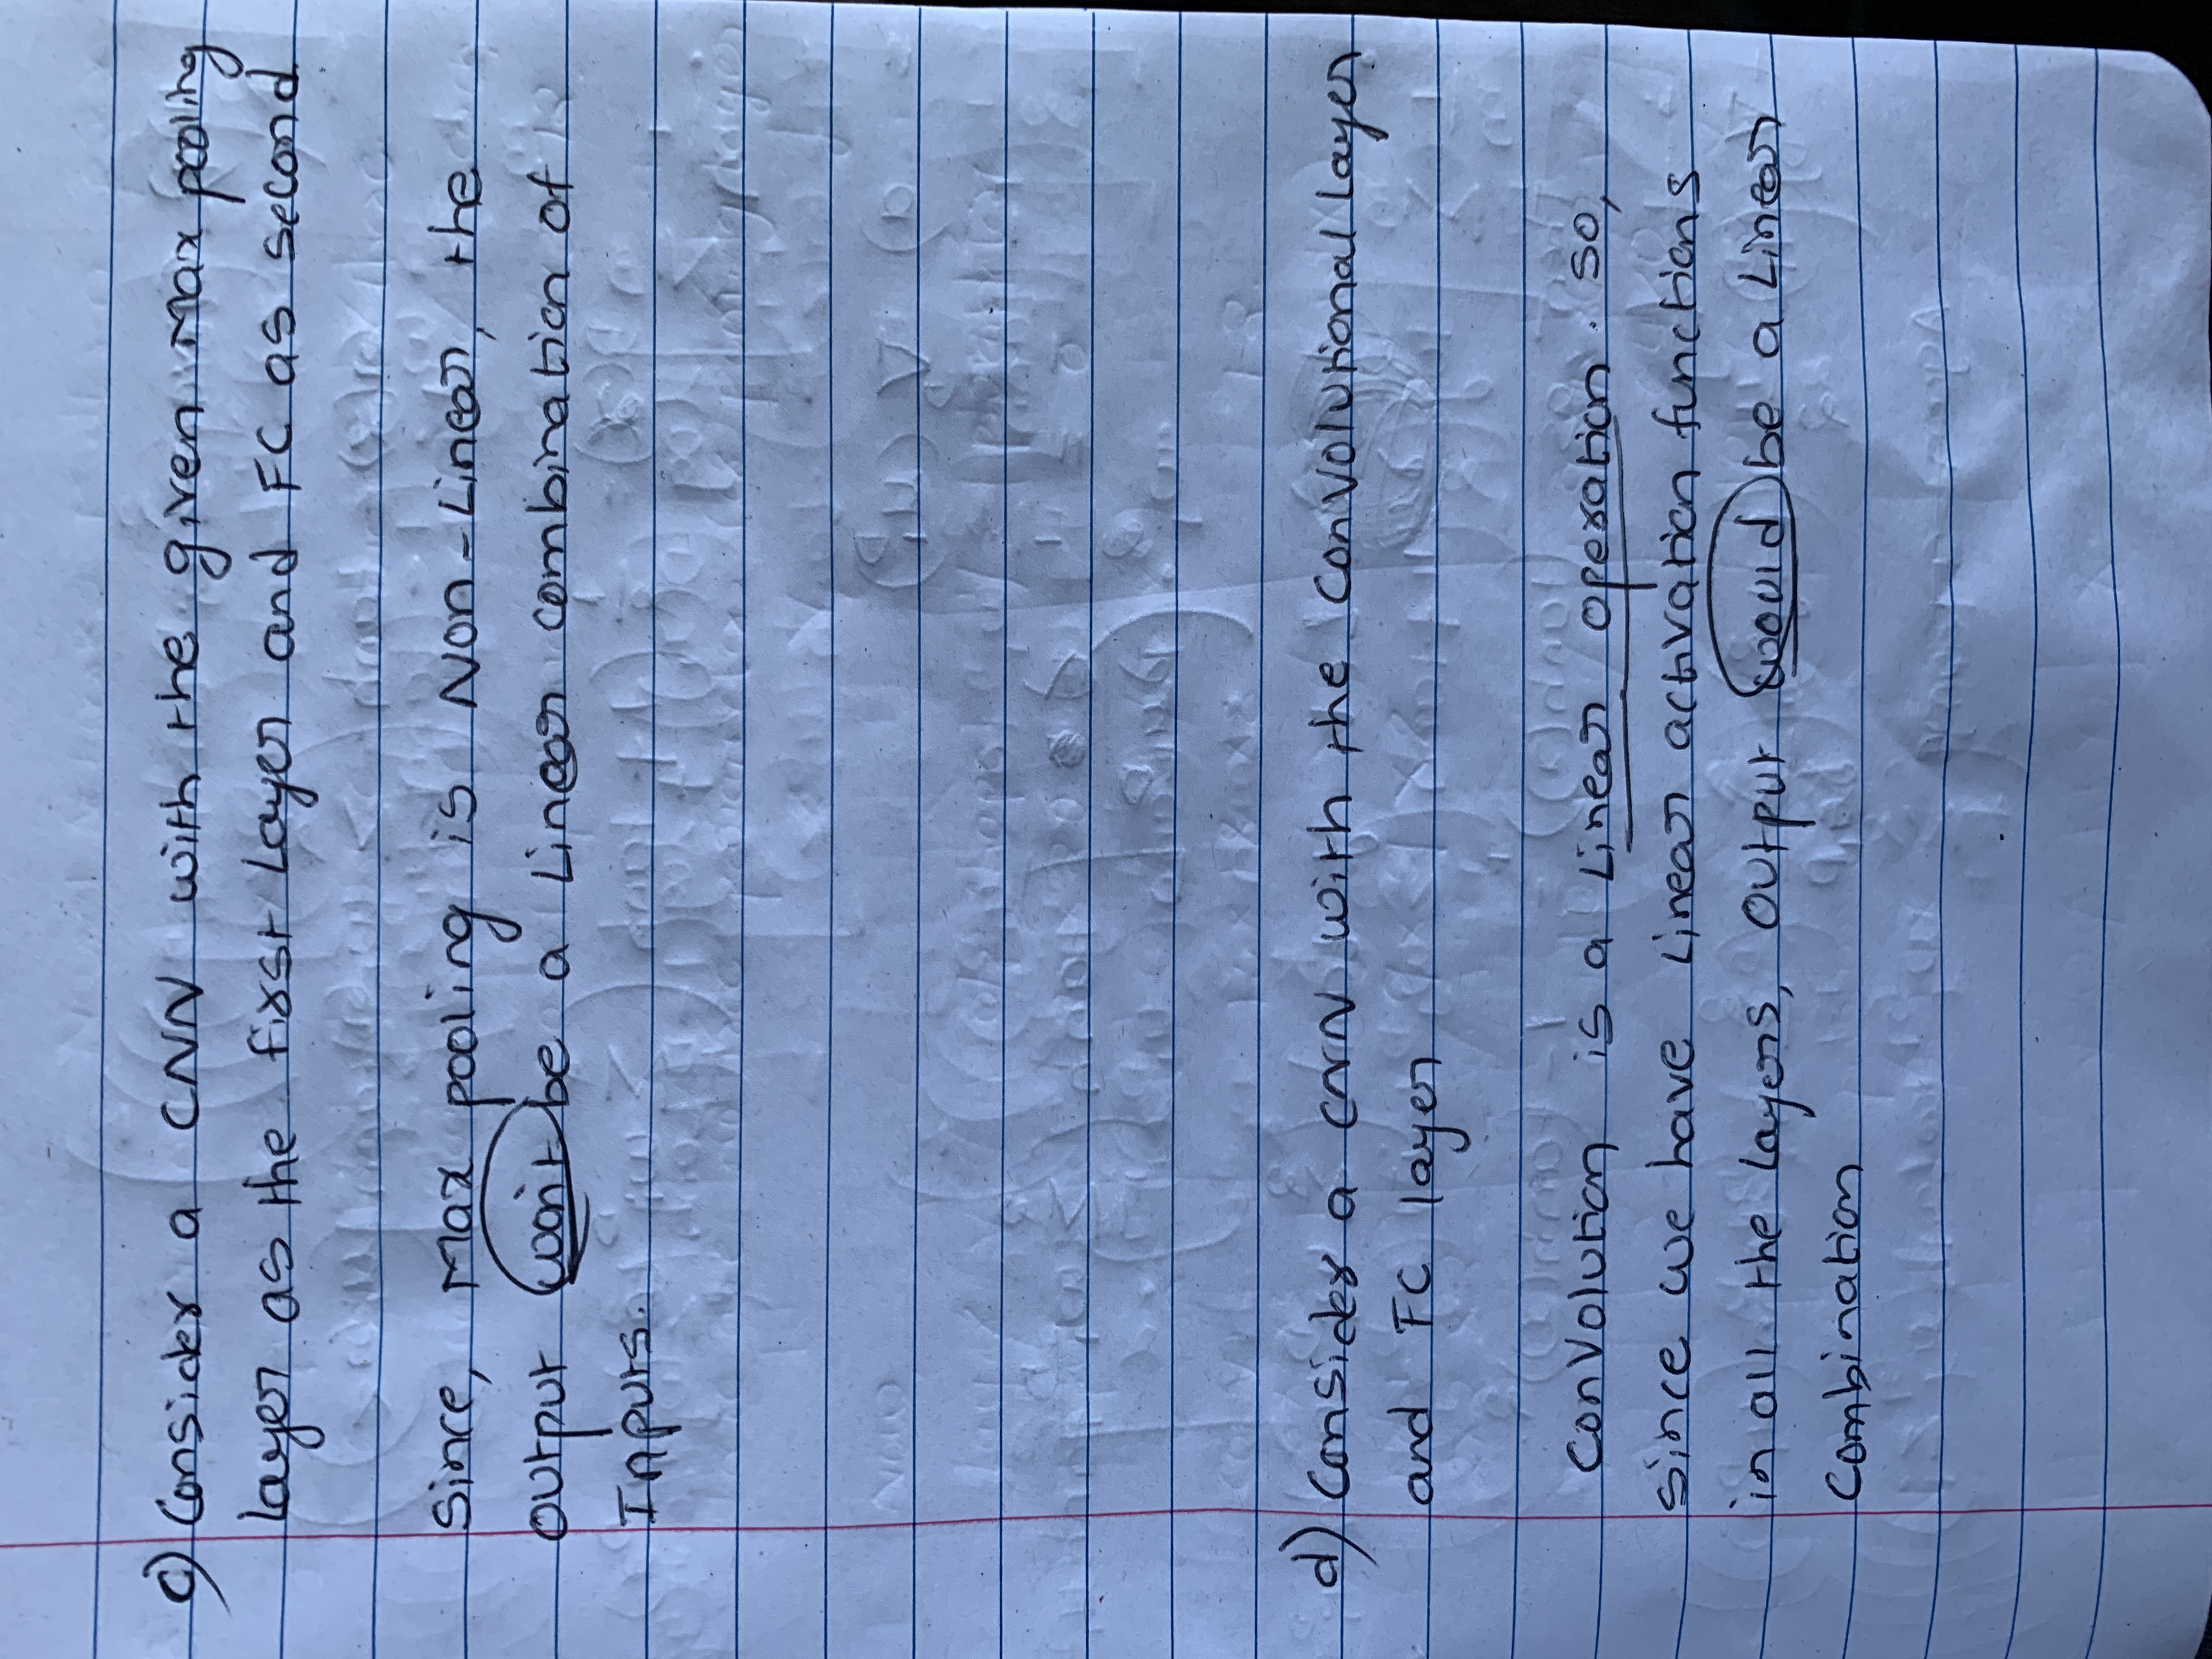 c) Consider a CNN with the given Max pooling
layer as the first Layer and FC as second
Since, Max pooling is Non-Linear, the
output won't be a Linear combination of
Inputs.
d) Consider a CNN with the Convolutional Layer
and FC layer
Convolution is a Linear operation. So,
since we have Linear activation functions
in all the Layers, Output would be a Linear
Combination